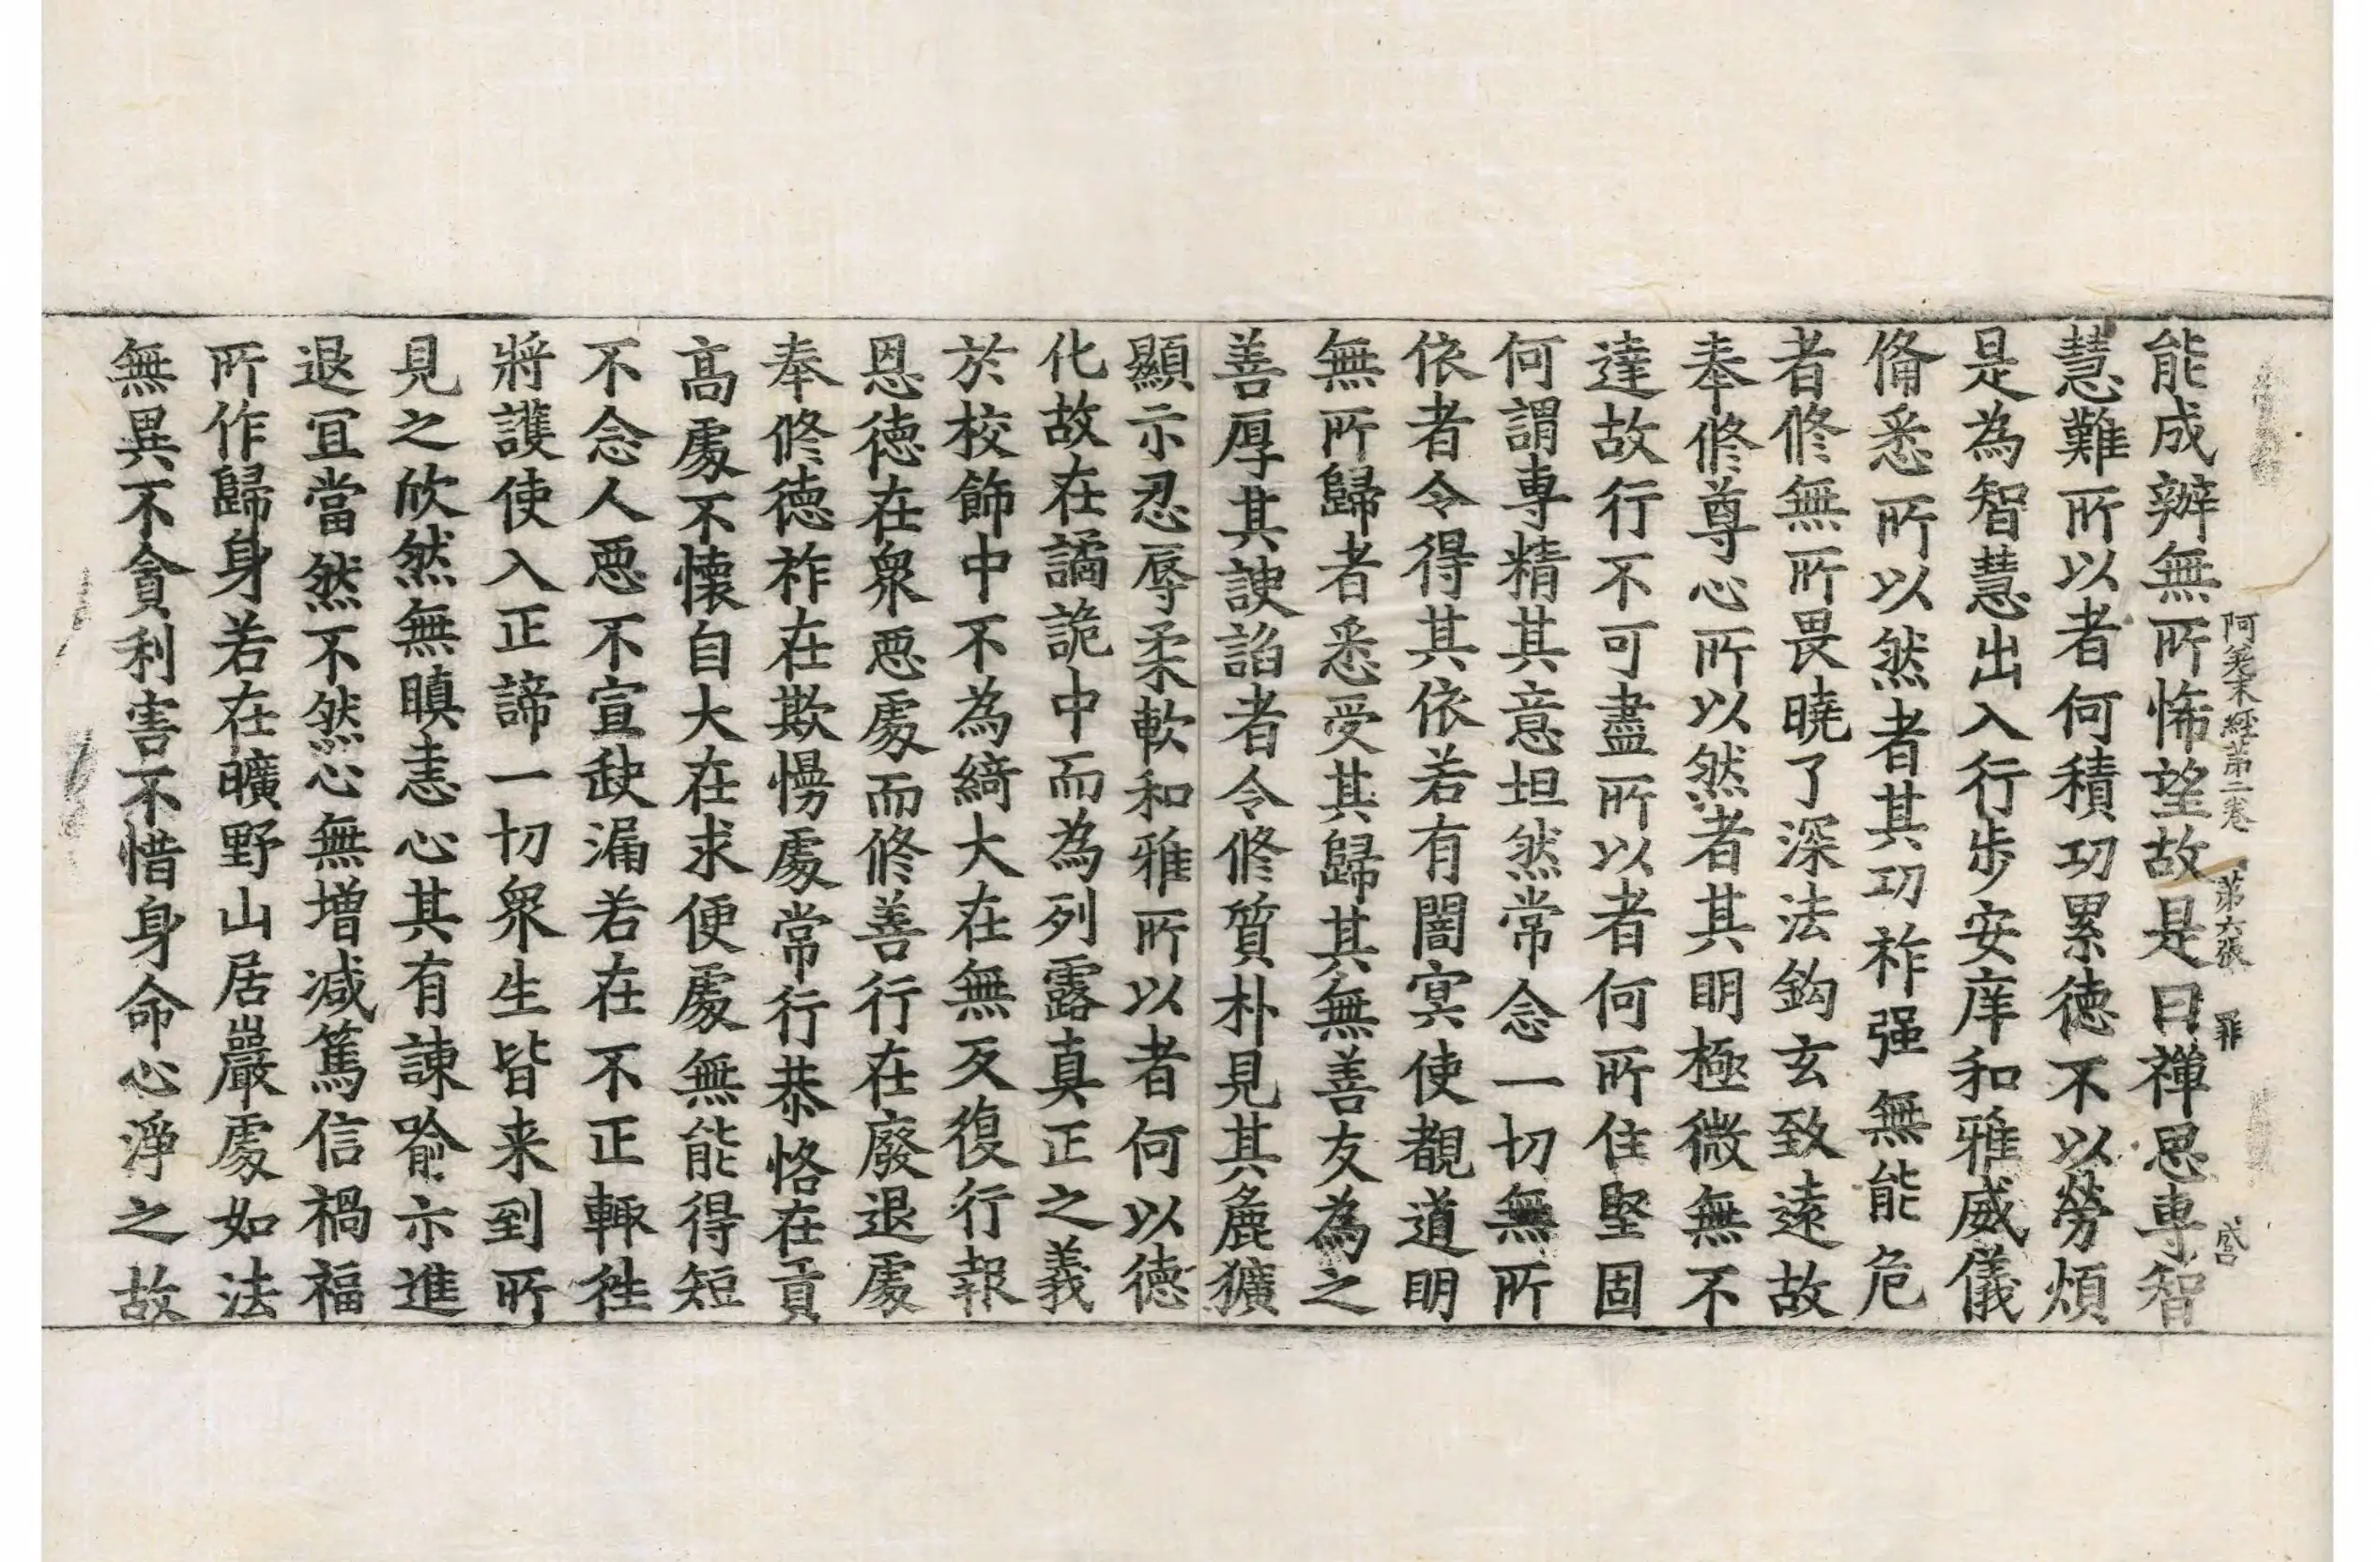 能成辦無所悕望故是曰禪思專智
阿差末經第二卷　第六張　罪
慧難所以者何積功累德不以勞煩
是為智慧出入行步安庠和雅威儀
俻悉所以然者其功祚强無能危
者修無所畏曉了深法鈎玄致遠故
奉修尊心所以然者其明極微無不
達故行不可盡所以者何所住堅固
何謂專精其意坦然常念一切無所
依者令得其依若有闇冥使覩道明
無所歸者悉受其歸其無善友為之
善厚其諛諂者令修質朴見其麁獷
顯示忍辱柔軟和雅所以者何以德
化故在譎詭中而為列露真正之義
於校飾中不為綺大在無反復行報
恩德在衆惡處而修善行在廢退處
奉修德祚在欺慢處常行恭恪在貢
高處不懷自大在求便處無能得短
不念人惡不宣缺漏若在不正輙往
將護使入正諦一切衆生皆来到所
見之欣然無瞋恚心其有諫喻亦進
退宜當然不然心無增減篤信禍福
所作歸身若在曠野山居巖處如法
無異不貪利害不惜身命心淨之故